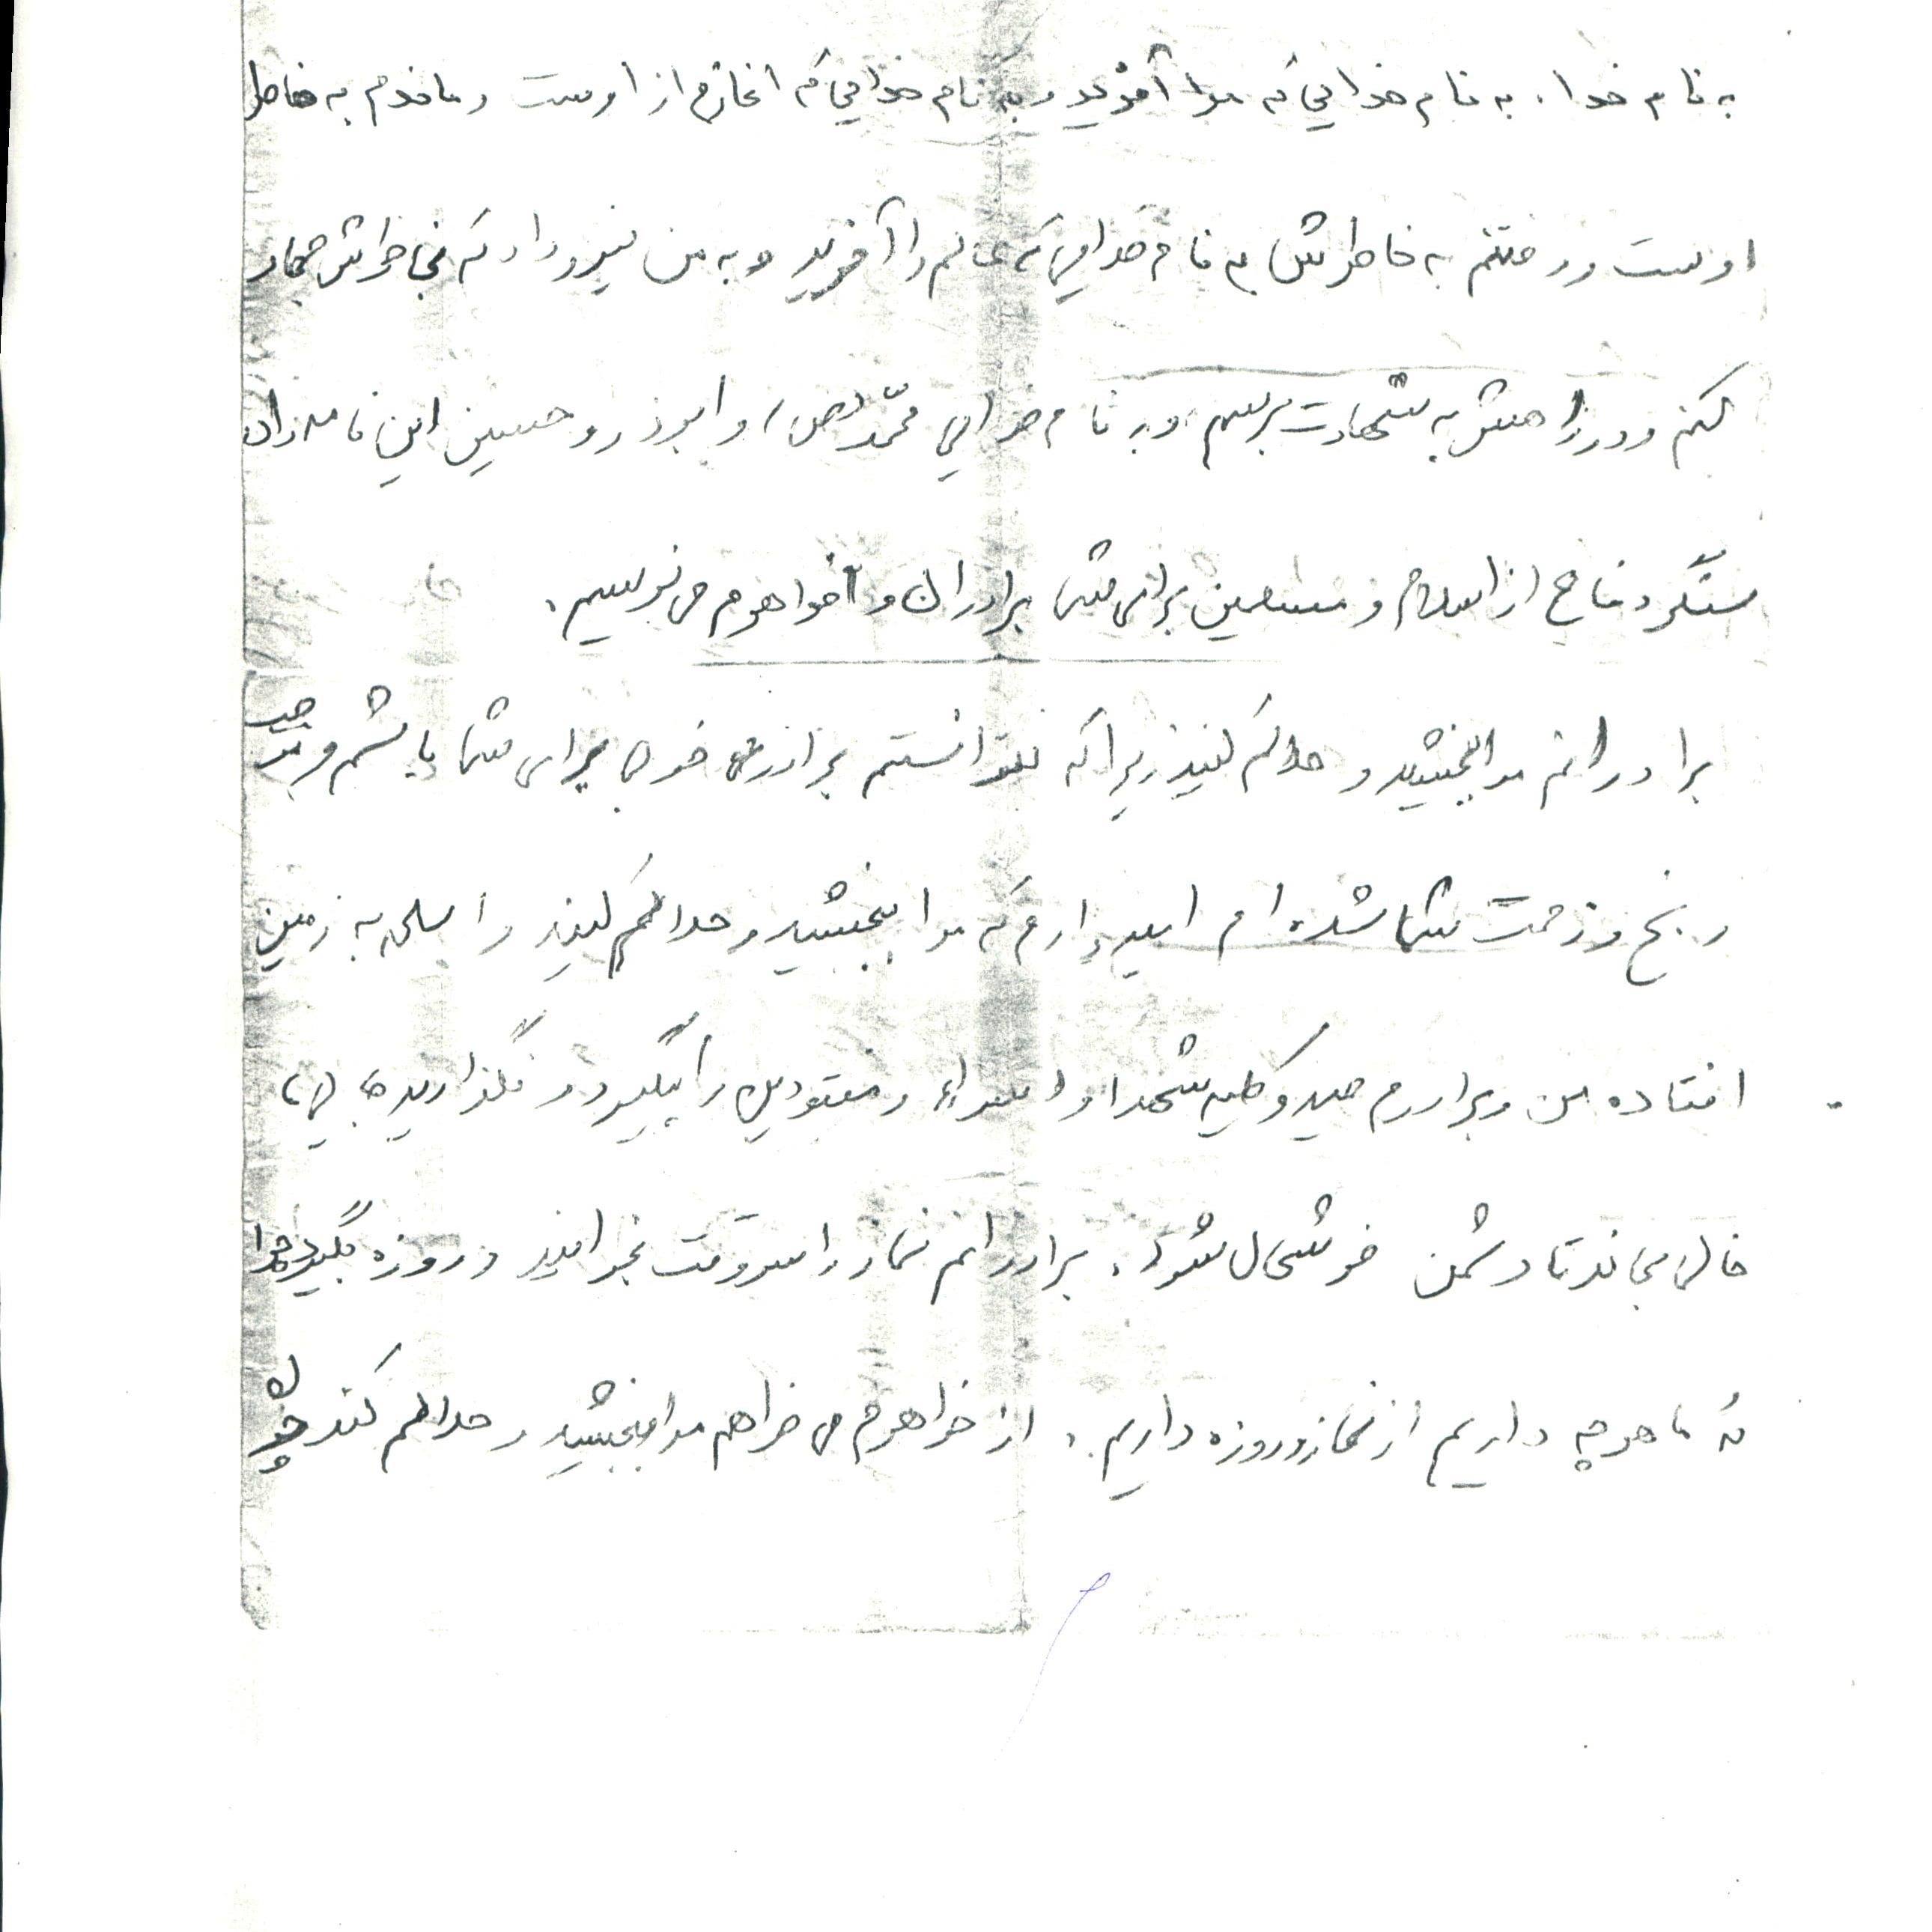 به نام خدا. به نام خدایی که مرا آفرید و به نام خدایی که آغازم از اوست و ماندم به خاطر
اوست و رفتنم به خاطرش به نام خدایی که عالم را آفرید و به من نیرو داد که بخاطرش جهاد
کنم و در راهش به شهادت برسم و به نام خدای محمّد (ص) و ابوذر و حسین این نامه را از
سنگر دفاع از اسلام و مسلمین برای شما برادران و خواهرم می نویسم.
برادرانم مرا ببخشید و حلالم کنید زیرا که نتوانستم برادر خوبی برای شما باشم و موجب
رنج و زحمت شما شده ام امید دارم که مرا ببخشید و حلالم کنید و اسلحه به زمین
افتاده من و برادرم صید و کلیه شهدا و اسراء و مفقودین را بگیرد و نگذارید جای ما
خالی بماند تا دشمن خوشحال شود. برادرانم نماز را سر وقت بخوانید و روزه بگیرید چرا
که ما هر چه داریم از نماز و روزه داریم. از خواهرم می خواهم مرا ببخشید و حلالم کند چون